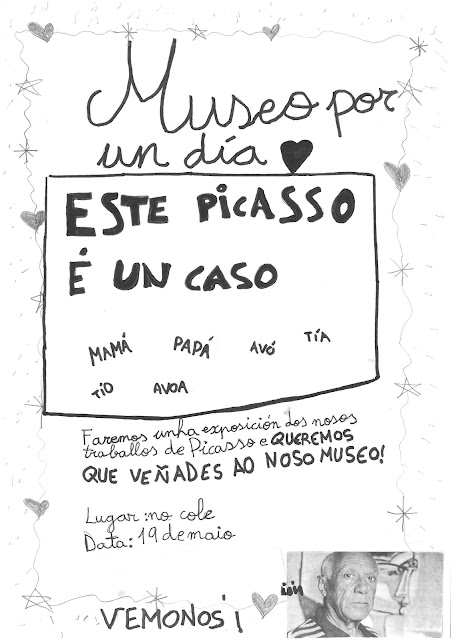 Museo por
un día
ESTE PICASSO
É UN CASO
MAMÁ PAPÁ AVÓ TÍA
TÍO AVOA
Faremos unha exposición dos nosos
traballos de Picasso e QUEREMOS
QUE VEÑADES AO NOSO MUSEO!
Lugar: no cole
Data: 19 de maio
VEMONOS!